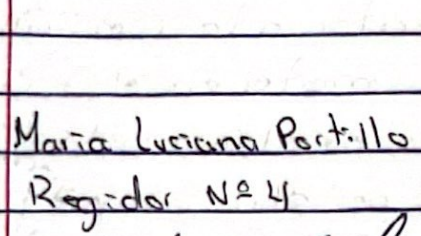 Maria Luciana Portillo
Regidor Nº 4